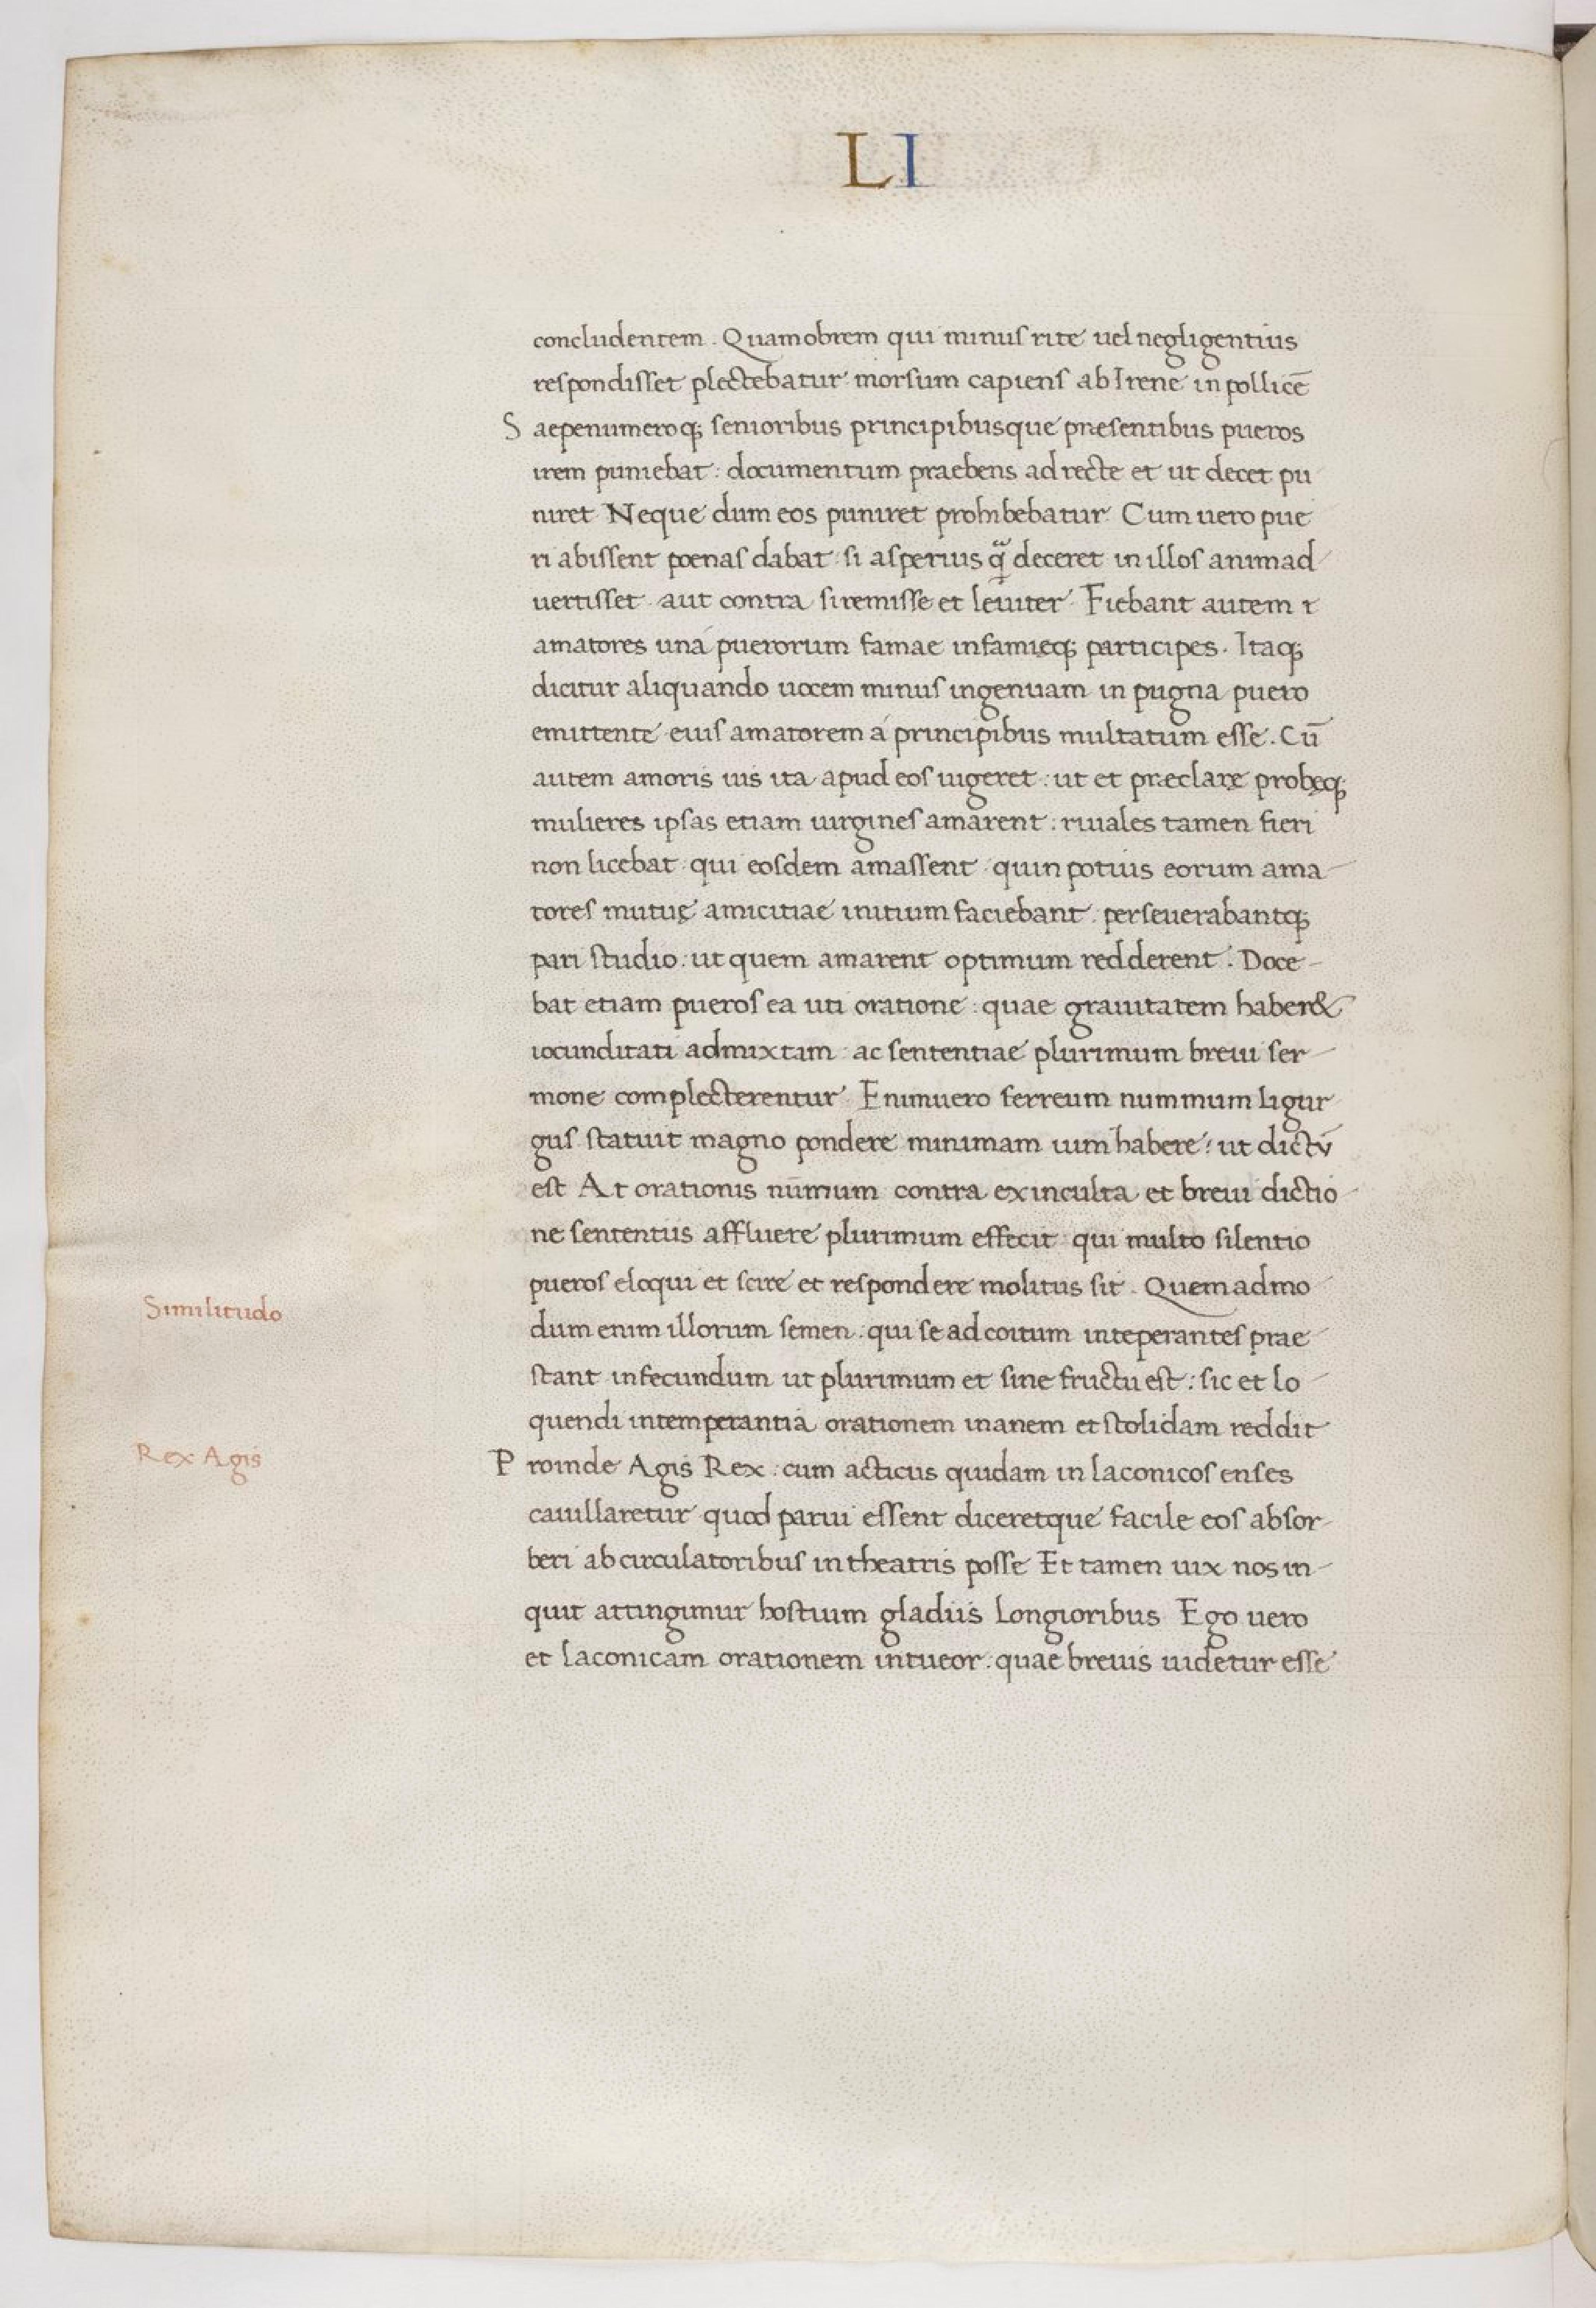 LI
concludentem. Quamobrem qui minus rite uel negligentius
respondisset plectebatur morsum capiens ab Irene in pollicē
Saepenumeroq; senioribus principibusque praesentibus pueros
irem puniebat: documentum praebens ad recte et ut decet pu
niret Neque dum eos puniret prohibebatur. Cum uero pue
ri abissent poenas dabat: si asperius q̃ deceret in illos animad-
uertisset aut contra si remisse et leuiter. Fiebant autem &
amatores uná puerorum famae infamięq; participes. Itaq;
dicitur aliquando uocem minus ingenuam in pugna puero
emittente eius amatorem á principibus multatum esse. Cū
autem amoris ius ita apud eos uigeret: ut et praeclarę probęq;
mulieres ipsas etiam uirgines amarent: riuales tamen fieri
non licebat qui eosdem amassent quin potius eorum ama-
tores mutuę amicitiae initium faciebant: perseuerabantq;
pari studio: ut quem amarent optimum redderent. Doce-
bat etiam pueros ea uti oratione: quae grauitatem haber&
iocunditati admixtam ac sententiae plurimum breui ser-
mone complecterentur Enimuero ferreum nummum Ligur-
gus statuit magno pondere minimam uim habere: ut dictū
est At orationis nūmum contra ex inculta et breui dictio-
ne sententiis affluere plurimum effecit qui multo silentio
pueros eloqui et scire et respondere molitus sit. Quemadmo-
Similitudo
dum enim illorum semen: qui se ad coitum inteperantes prae-
stant infecundum ut plurimum et sine fructu est: sic et lo-
quendi intemperantia orationem inanem et stolidam reddit
Rex Agis
Proinde Agis Rex: cum acticus quidam in laconicos enses
cauillaretur quod parui essent diceretque facile eos absor-
beri ab circulatoribus in theatris posse Et tamen uix nos in-
quit attingimur hostium gladiis longioribus Ego uero
et laconicam orationem intueor: quae breuis uidetur esse